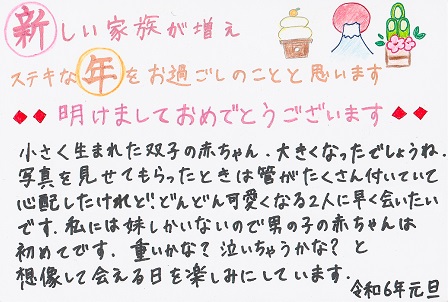 新しい家族が増え
ステキな年をお過ごしのことと思います
明けましておめでとうございます
小さく生まれた双子の赤ちゃん、大きくなったでしょうね。
写真を見せてもらったときは管がたくさん付いていて
心配したけれど!どんどん可愛くなる2人に早く会いたい
です。私には妹しかいないので男の子の赤ちゃんは
初めてです。重いかな?泣いちゃうかな?と
想像して会える日を楽しみにしています。
令和6年元旦